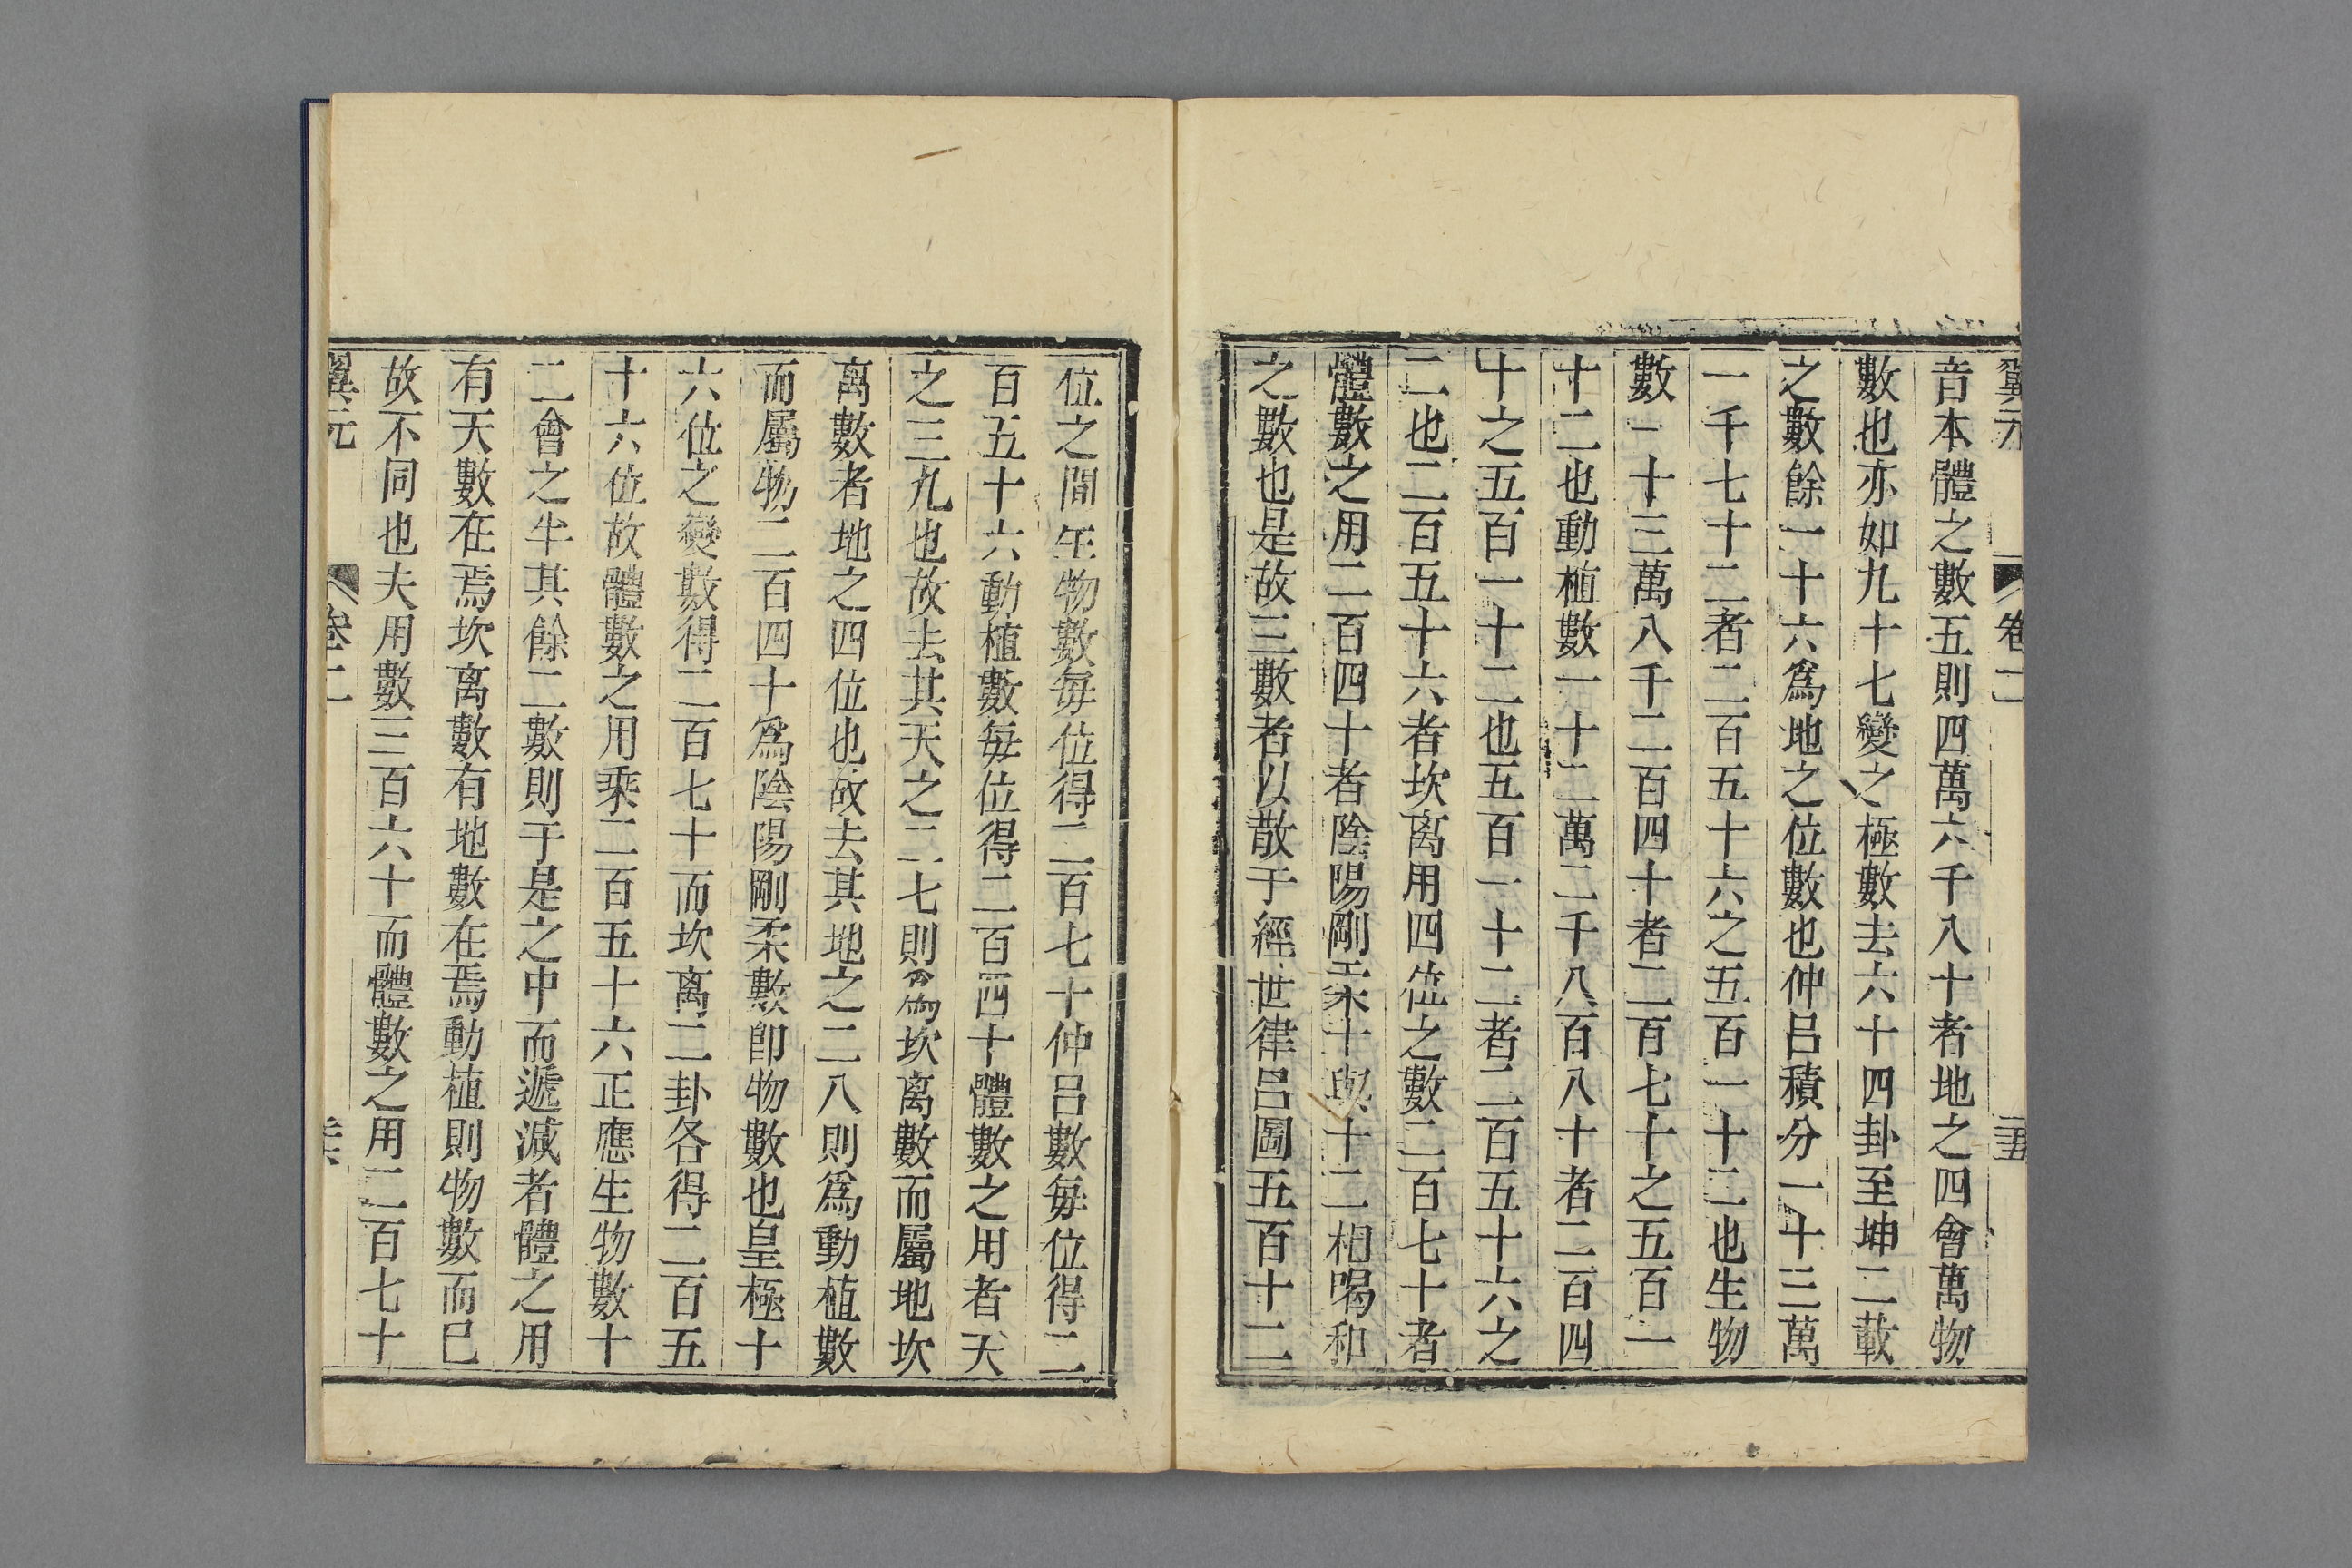 翼元 卷二
音本體之數五則四萬六千八十者地之四會萬物
數也亦如九十七變之極數去六十四卦至坤二載
之數餘一十六爲地之位數也仲呂積分一十三萬
一千七十二者二百五十六之五百一十二也生物
數一十三萬八千二百四十者二百七十之五百一
十二也動植數一十二萬二千八百八十者二百四
十之五百一十二也五百一十二者二百五十六之
二也二百五十六者坎离用四位之數二百七十者
體數之用二百四十者陰陽剛柔十與十二相唱和
之數也是故三數者以散于經世律呂圖五百十二
位之間生物數每位得二百七十仲呂數每位得二
百五十六動植數每位得二百四十體數之用者天
之三九也故去其天之二七則爲坎离數而屬地坎
离數者地之四位也故去其地之二八則爲動植數
而屬物二百四十爲陰陽剛柔數卽物數也皇極十
六位之變數得二百七十而坎离二卦各得二百五
十六位故體數之用乘二百五十六正應生物數十
二會之半其餘二數則于是之中而遞減者體之用
有天數在焉坎离數有地數在焉動植則物數而已
故不同也夫用數三百六十而體數之用二百七十
翼元 卷二